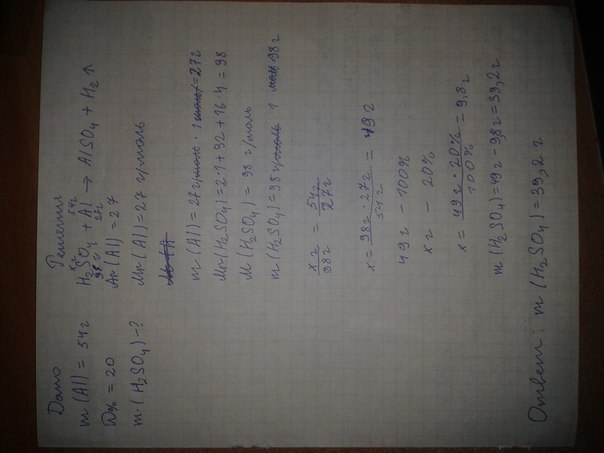 Дано
m(Al) = 54г
ω% = 20
m(H₂SO₄) - ?
Решение
xг 54г
H₂SO₄ + Al → AlSO₄ + H₂↑
98г 27г
Ar(Al) = 27
Mr(Al) = 27 г/моль
m(Al) = 27г/моль · 1 моль = 27г
Mr(H₂SO₄) = 2·1+32+16·4 = 98
M(H₂SO₄) = 98 г/моль
m(H₂SO₄) = 98г/моль · 1 моль = 98г
xг / 98г = 54г / 27г
x = 98г · 27г / 54г = 49г
49г - 100%
xг - 20%
x = 49г · 20% / 100% = 9,8г
m(H₂SO₄) = 49г - 9,8г = 39,2г
Ответ: m(H₂SO₄) = 39,2 г